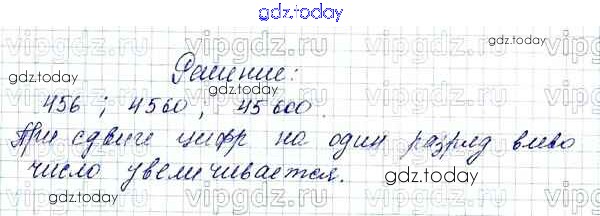 gdz.today
vipgdz.ru vipgdz.ru vipgdz.ru
gdz.today Решение: gdz.today
456 ; 4560 ; 45600.
При сдвиге цифр на один разряд влево
число увеличивается.
gdz.today gdz.today